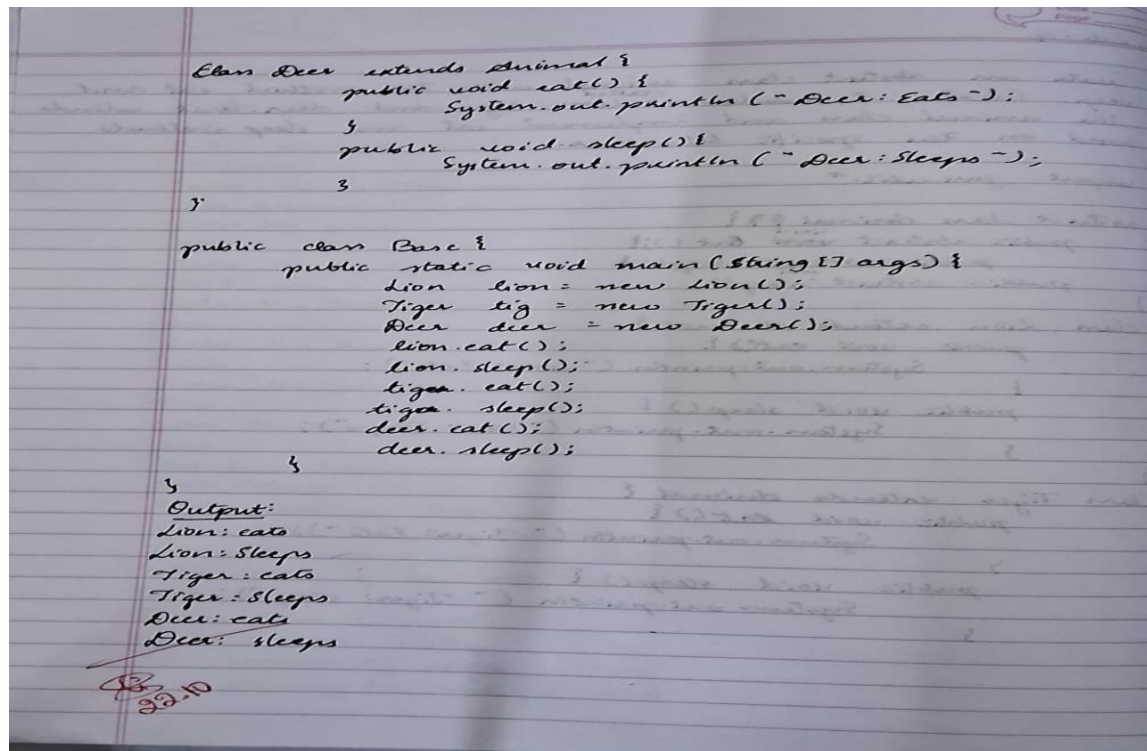 Class Deer extends Animal {
public void eat() {
System.out.println ("Deer: Eats");
}
public void sleep() {
System.out.println ("Deer: Sleeps");
}
}
public class Base {
public static void main(String [] args) {
Lion lion = new Lion();
Tiger tig = new Tiger();
Deer deer = new Deer();
lion.eat();
lion.sleep();
tiger. eat();
tiger. sleep();
deer.eat();
deer.sleep();
}
}
Output:
Lion: eats
Lion: Sleeps
Tiger: eats
Tiger: Sleeps
Deer: eats
Deer: sleeps
22.10